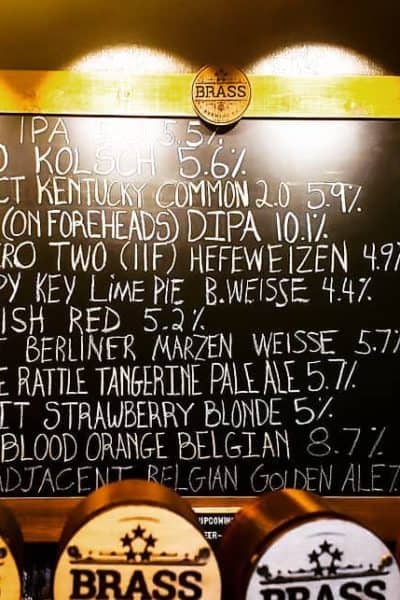 BRASS
BREWING CO
IPA 5.5%
KOLSCH 5.6%
CT KENTUCKY COMMON 2.0 5.9%
(ON FOREHEADS) DIPA 10.1%
RO TWO (IIF) HEFEWEIZEN 4.9%
PY KEY LIME PIE B.WEISSE 4.4%
ISH RED 5.2%
BERLINER MARZEN WEISSE 5.7%
E RATTLE TANGERINE PALE ALE 5.7%
IT STRAWBERRY BLONDE 5%
BLOOD ORANGE BELGIAN 8.7%
ADJACENT BELGIAN GOLDEN ALE 7.
UPCOMING
BEER-
BRASS
BRASS